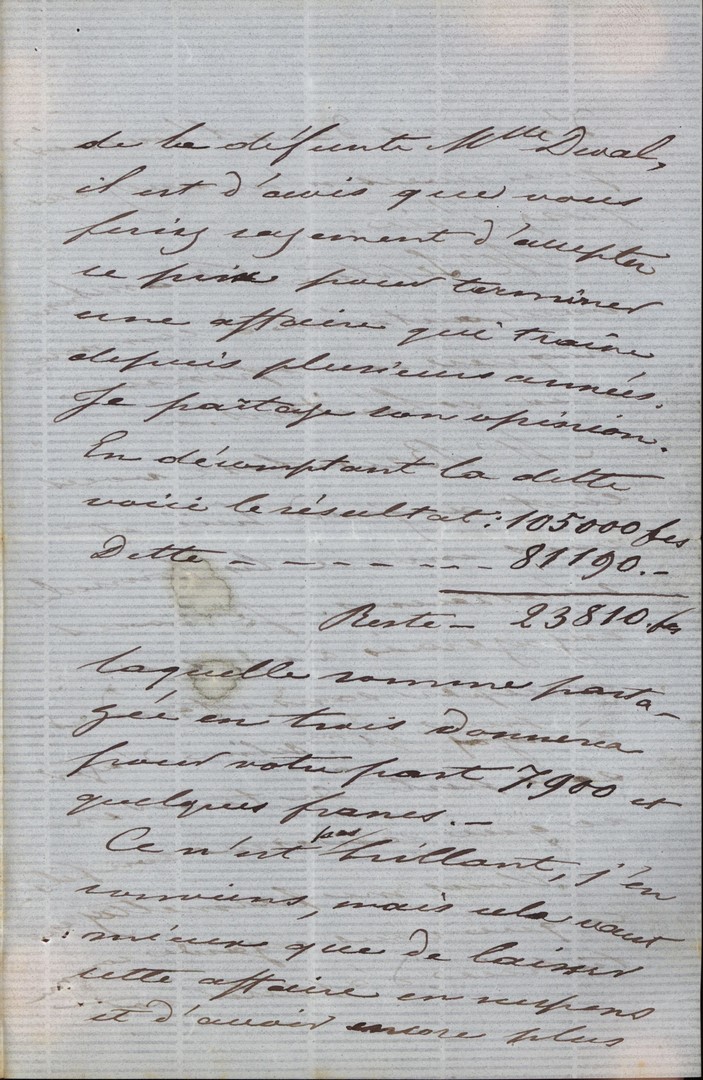 de la défunte Mlle Duval,
il est d'avis que vous
feriez sagement d'accepter
ce prix pour terminer
une affaire qui traîne
depuis plusieurs années.
Je partage son opinion.
En décomptant la dette
voici le résultat: 105000 fcs
Dette - - - - - - - 81190.-
Reste - 23810. fcs
laquelle somme parta-
gée en trois donnera
pour votre part 7.900 et
quelques francs. -
Ce n'est pas brillant, j'en
conviens, mais cela vaut
mieux que de laisser
cette affaire en suspens
et d'avoir encore plus